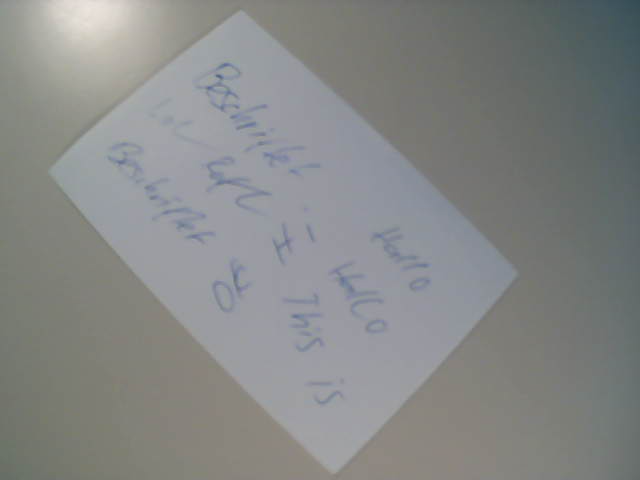 Hallo
Beschriftet :- Hallo
Lol I This is
Beschriftet